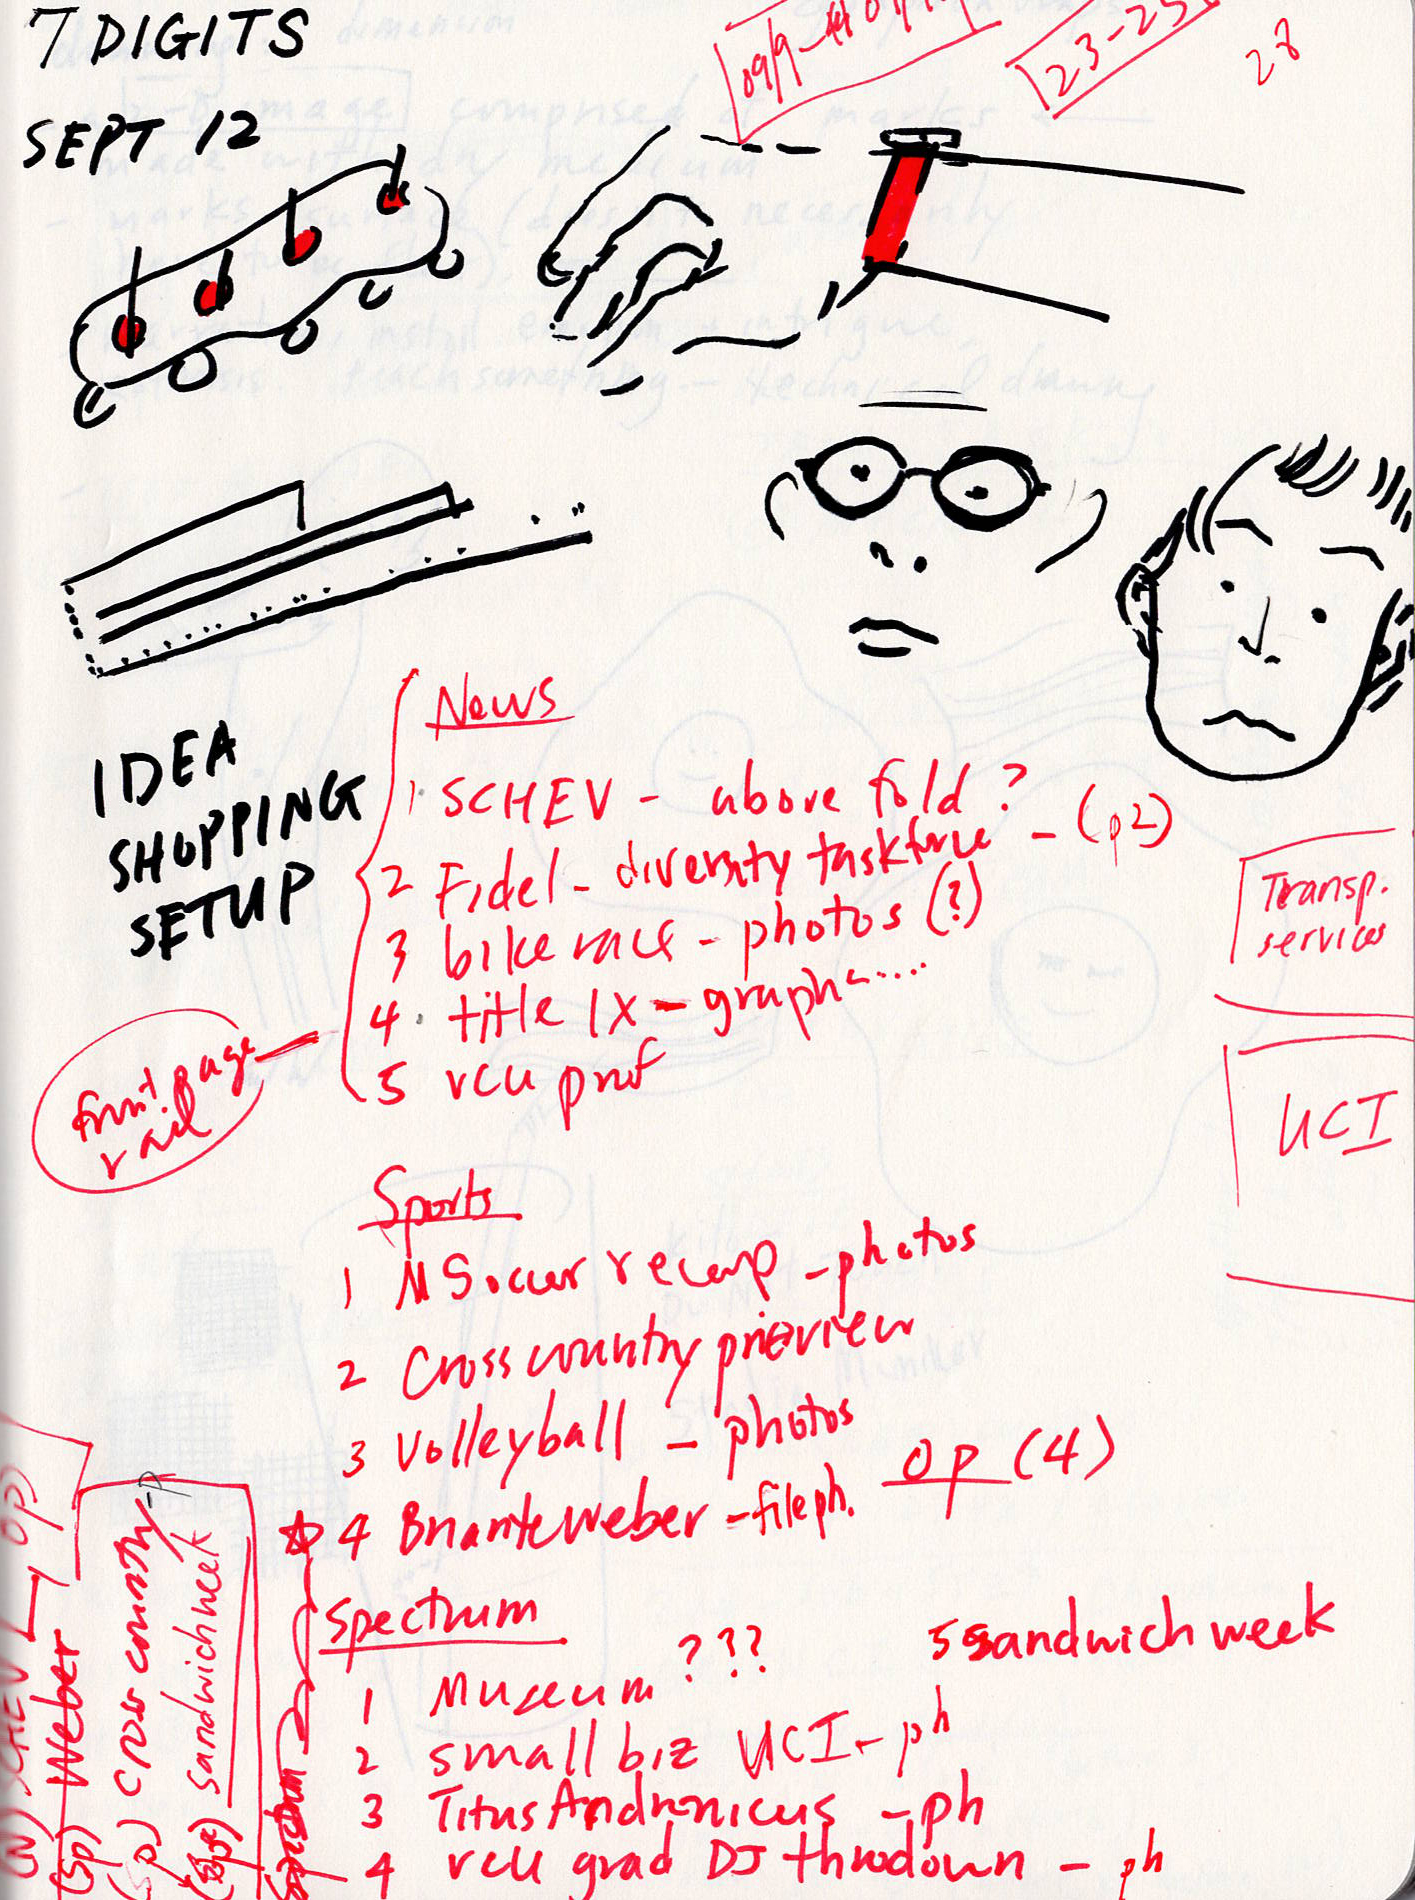 7 DIGITS
SEPT 12
23-25
28
IDEA
SHOPPING
SETUP
News
1. SCHEV - above fold?
2 Fidel - diversity taskforce - (p2)
3 bike race - photos (?)
4. title IX - graph
5 vcu prof
front page
rail
Transp.
services
UCI
Sports
1 M Soccer recap - photos
2 Cross country preview
3 Volleyball - photos
4 Briante Weber - file ph.
op (4)
Spectrum
1 Museum ???
2 small biz UCI - ph
3 Titus Andronicus - ph
4 vcu grad DJ throwdown - ph
5 sandwich week
(N) SCHEV
op
(Sp) Weber
(Sp) cross country - p
sandwich week
Spectrum